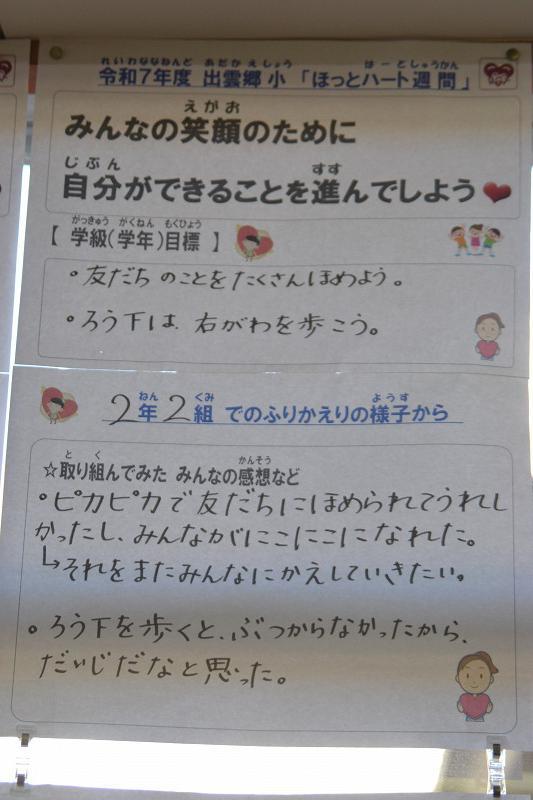 れいわななねんど あだかえしょう はーとしゅうかん
令和7年度 出雲郷小 「ほっとハート週間」
えがお
みんなの笑顔のために
じぶん すす
自分ができることを進んでしよう
がっきゅう がくねん もくひょう
【 学級(学年)目標 】
・友だちのことをたくさんほめよう。
・ろう下は、右がわを歩こう。
ねん くみ ようす
2年2組 でのふりかえりの様子から
と く かんそう
☆取り組んでみた みんなの感想など
・ピカピカで友だちにほめられてうれし
かったし、みんながにこにこになれた。
↳それをまたみんなにかえしていきたい。
・ろう下を歩くと、ぶつからなかったから、
だいじだなと思った。